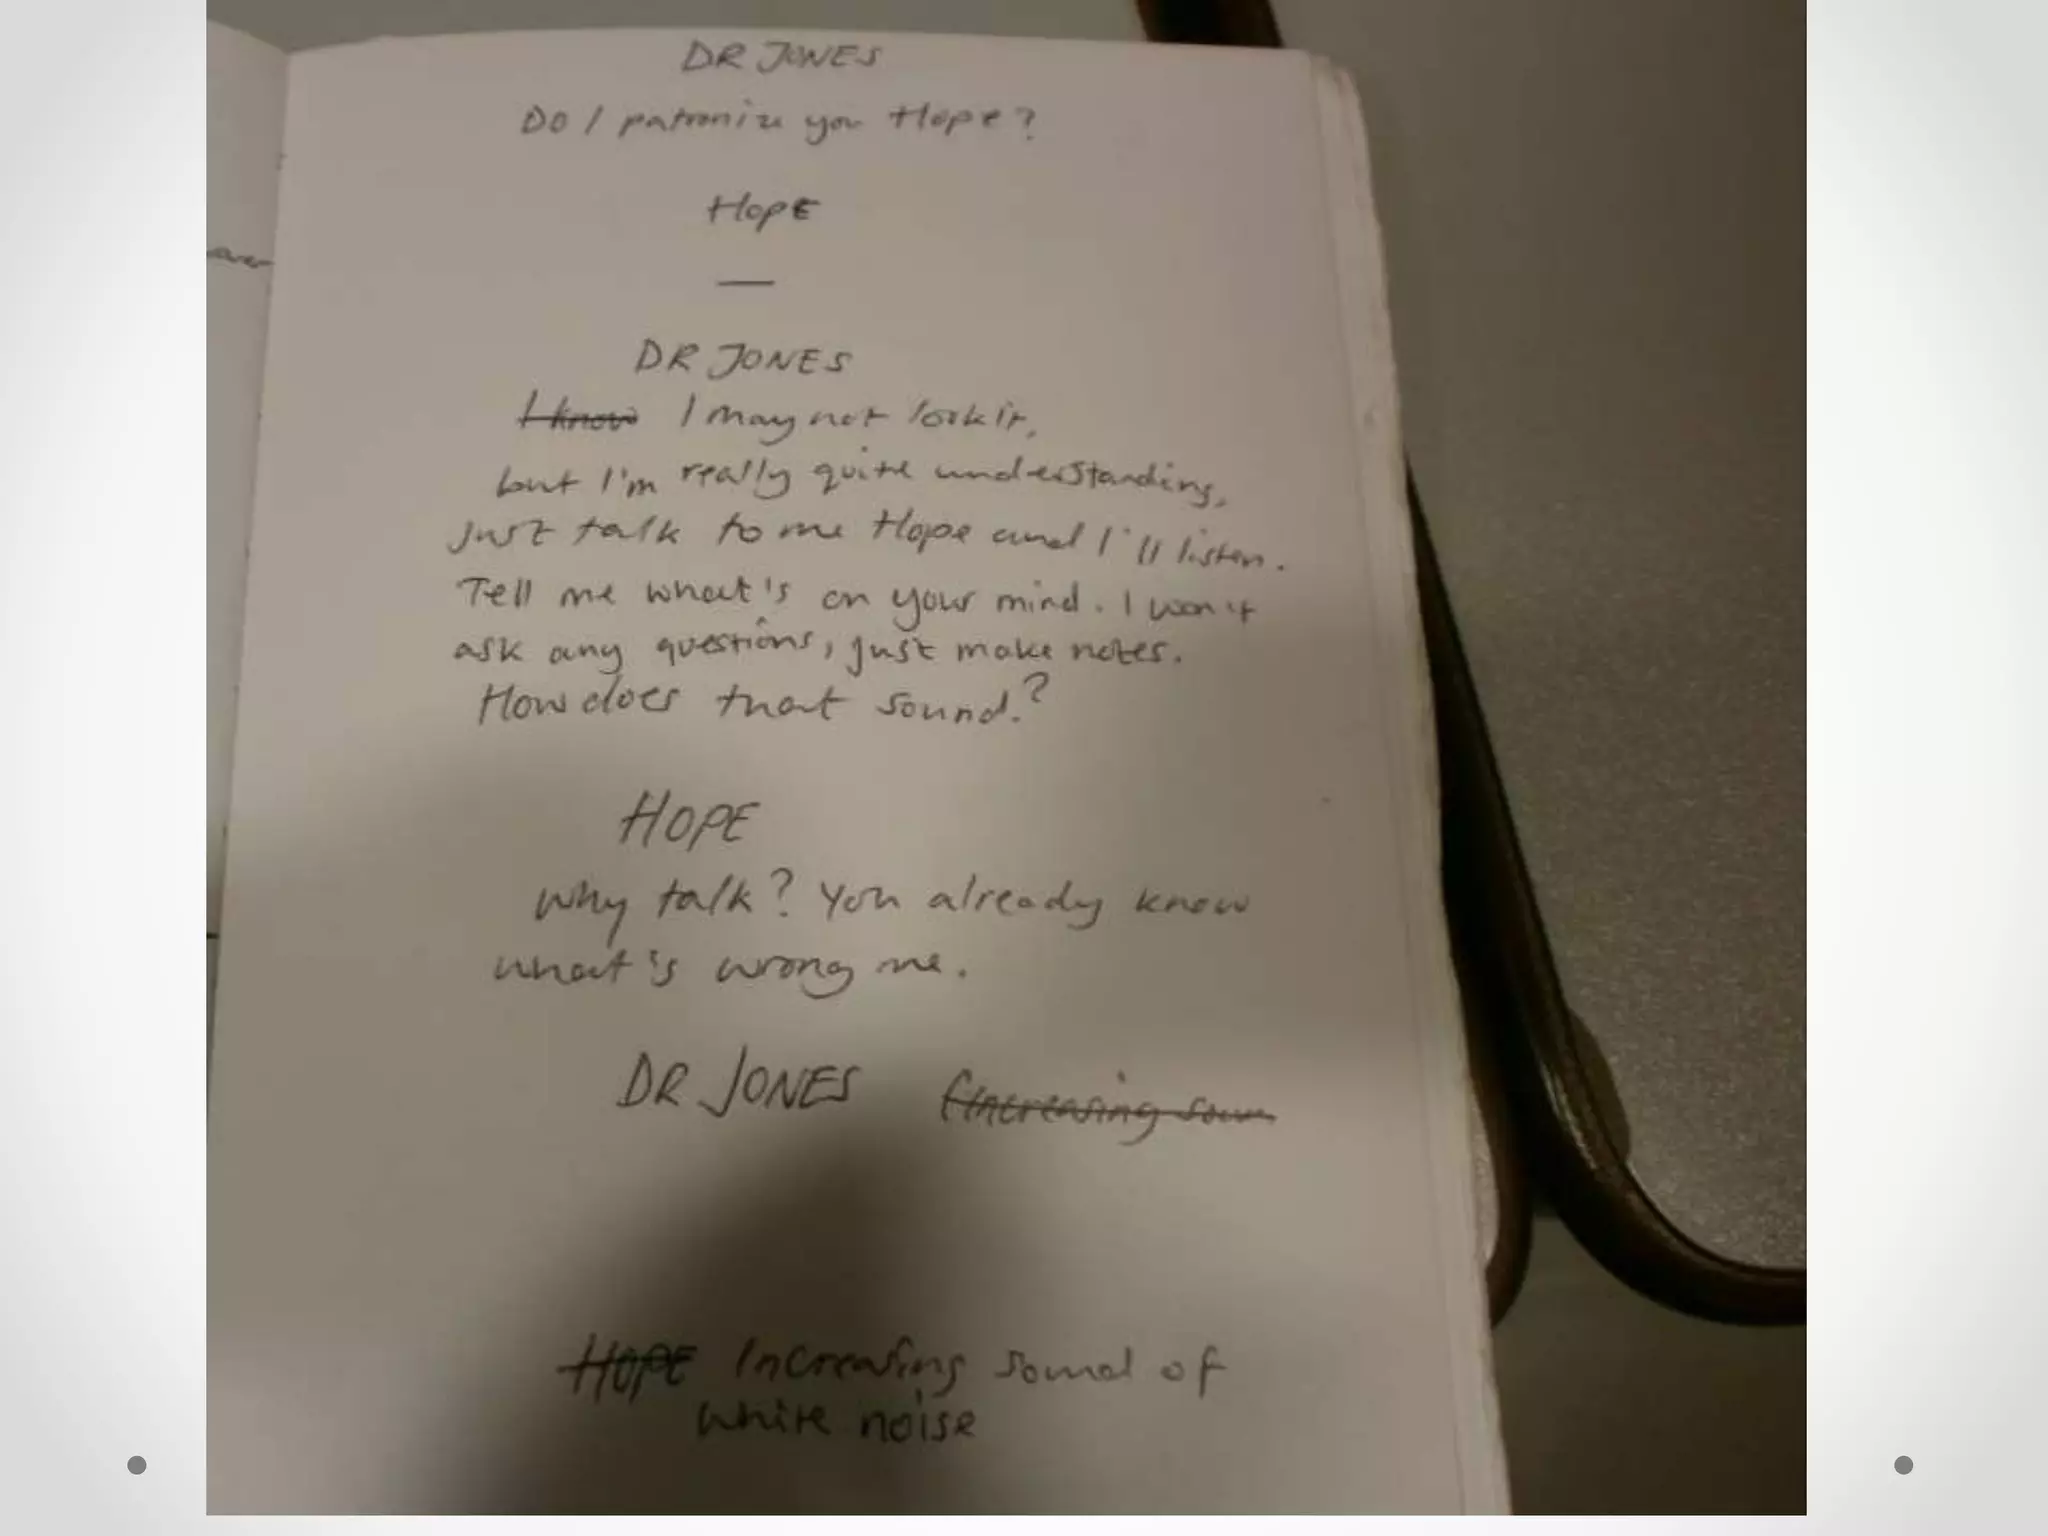 DR JONES
Do I patronize you Hope?
HOPE
—
over
DR JONES
I know I may not look it,
but I'm really quite understanding,
Just talk to me Hope and I'll listen.
Tell me what's on your mind. I won't
ask any questions, just make notes.
How does that sound?
HOPE
Why talk? You already know
what's wrong me.
DR JONES (Increasing soun
HOPE Increasing sound of
white noise